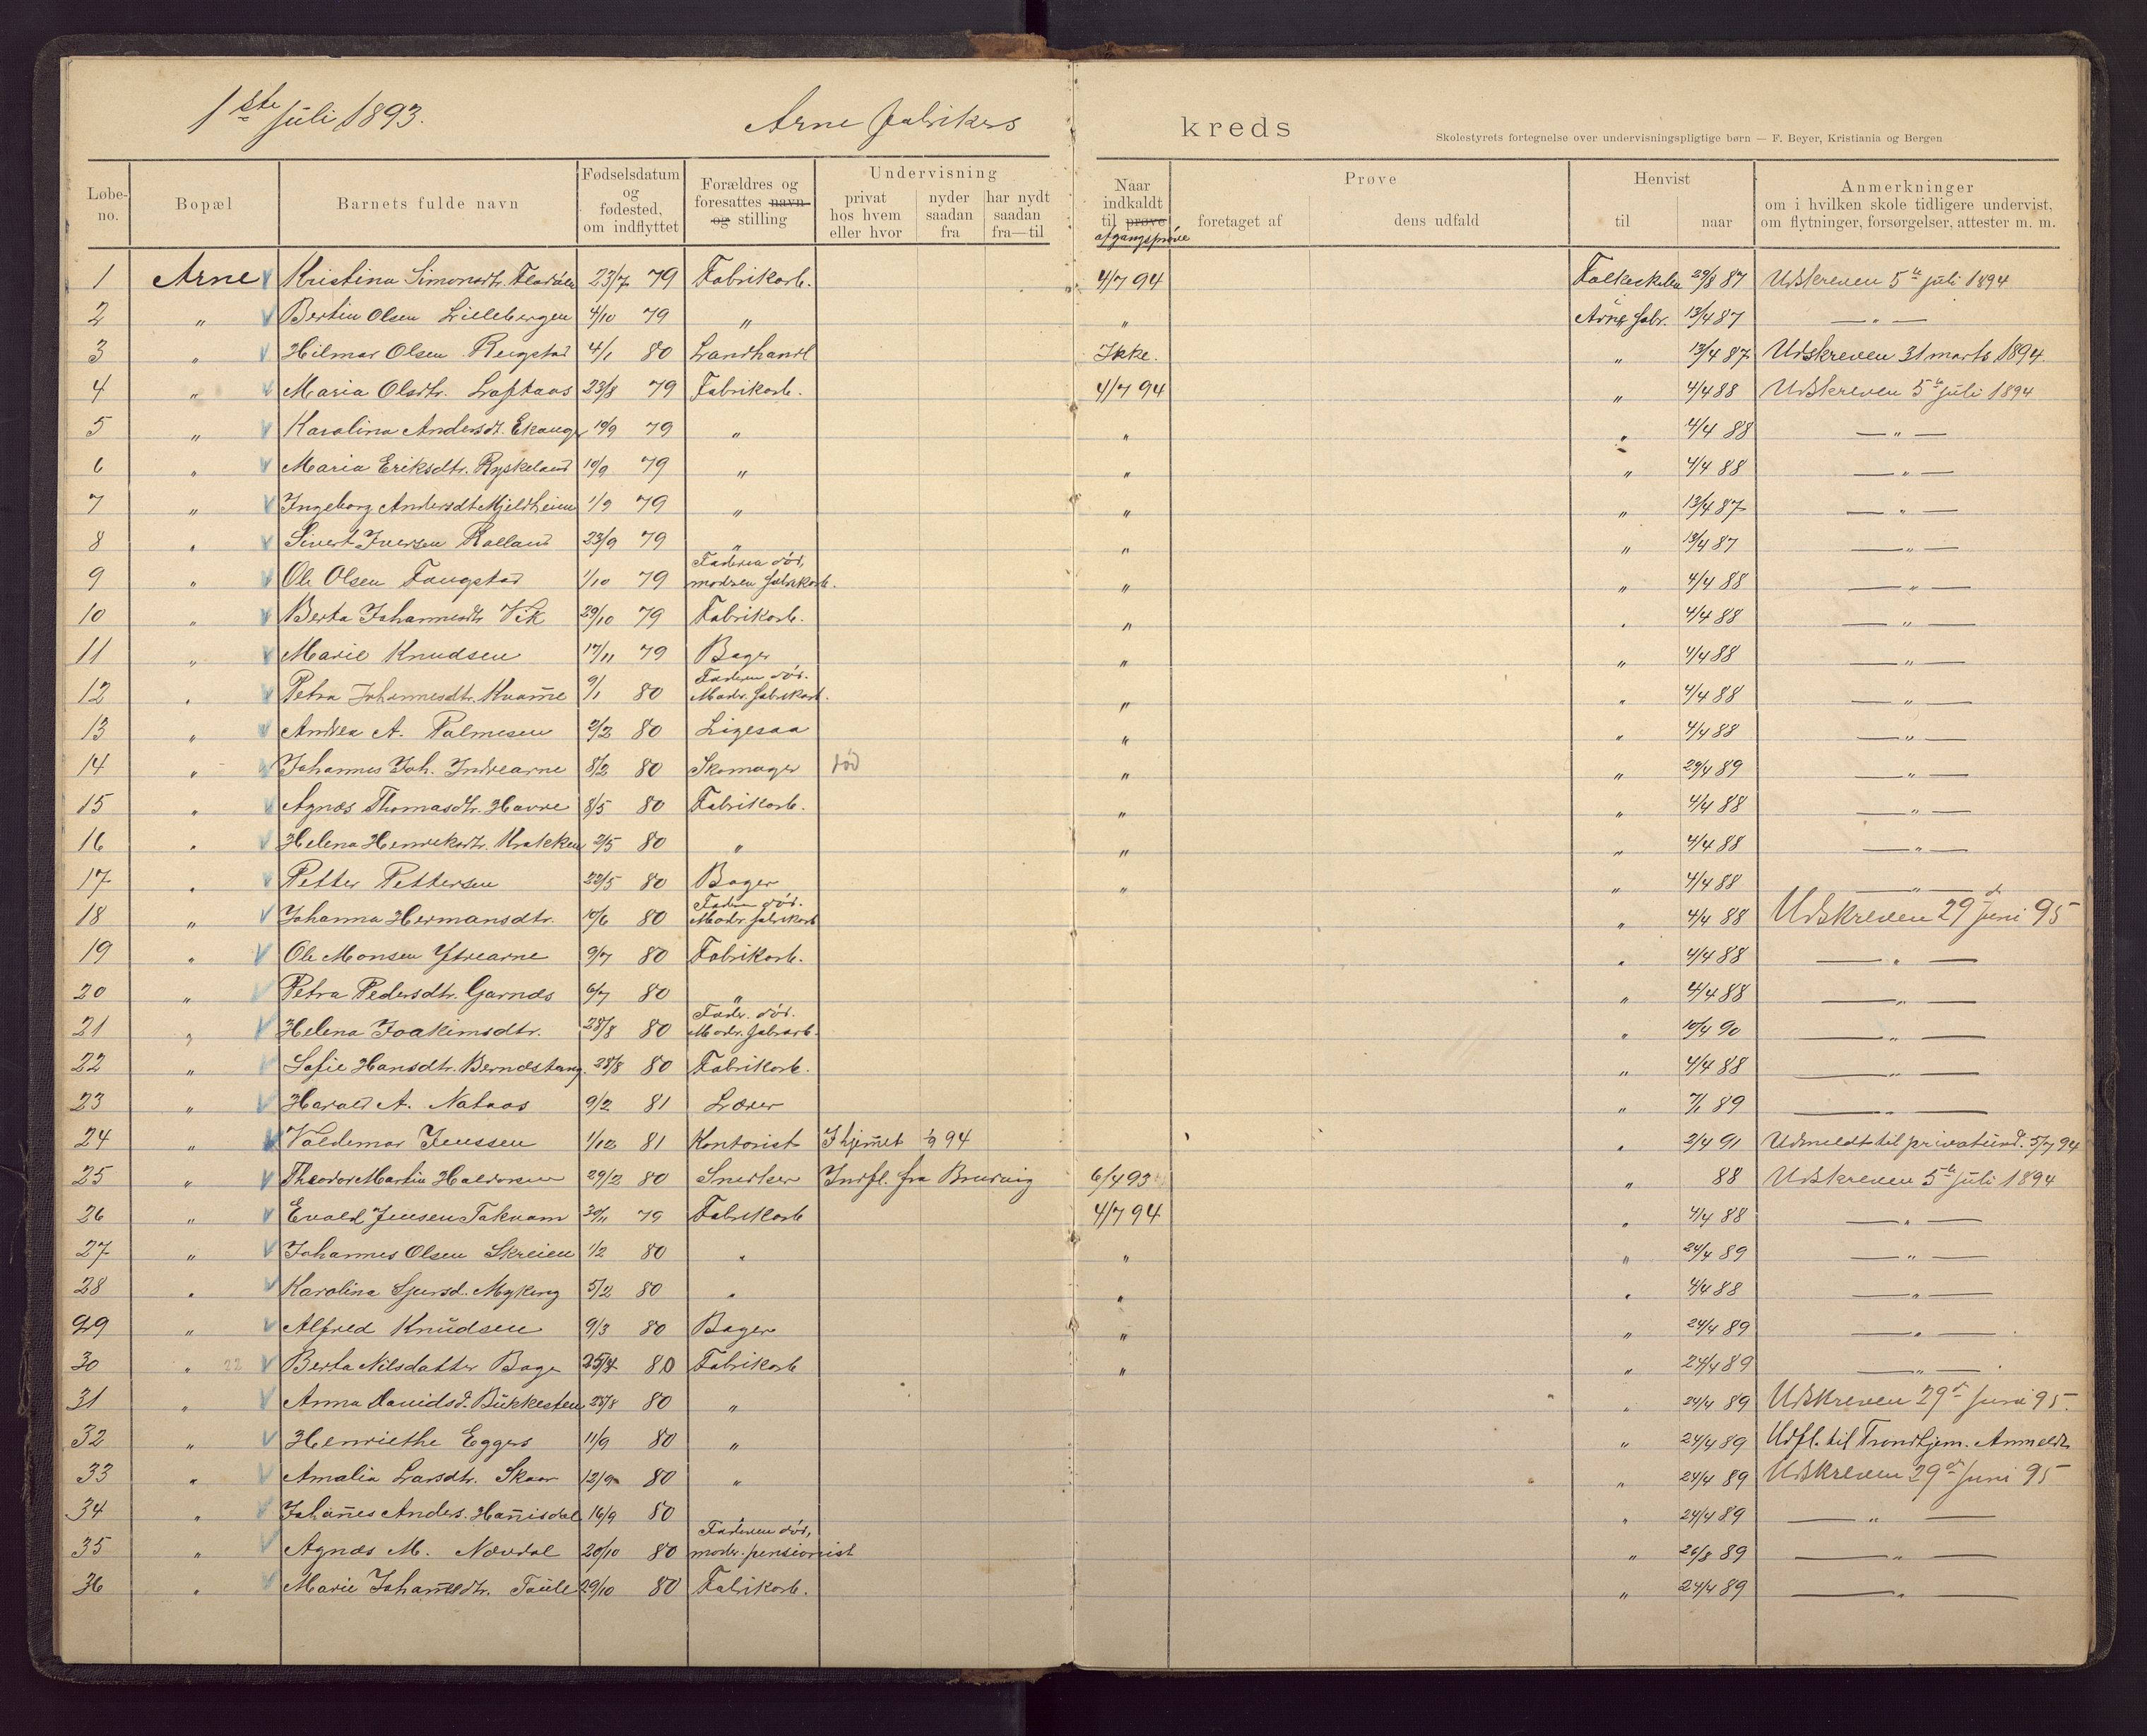 1ste juli 1893. Arne fabrikers kreds
Skolestyrets fortegnelse over undervisningspligtige børn — F. Beyer, Kristiania og Bergen
Løbe-no. Bopæl Barnets fulde navn Fødselsdatum og fødested, om indflyttet Forældres og foresattes navn og stilling Undervisning privat hos hvem eller hvor nyder saadan fra har nydt saadan fra—til Naar indkaldt til prøve afgangsprøve Prøve foretaget af dens udfald Henvist til naar Anmerkninger om i hvilken skole tidligere undervist, om flytninger, forsørgelser, attester m. m.
1 Arne Kristina Simonsdtr. 23/7 79 Fabrikarb. 4/7 94 Folkeskolen 29/8 87 Udskreven 5te juli 1894
2 " Bertin Olsen Lillebergen 4/10 79 " " Arne fabr. 13/4 87 — " —
3 " Hilmar Olsen Ringstad 4/1 80 Landhandl Ikke. " 13/4 87 Udskreven 31 marts 1894.
4 " Maria Olsdtr. Loftaas 23/8 79 Fabrikarb. 4/7 94 " 4/4 88 Udskreven 5te juli 1894
5 " Karolina Andersdt. Ekanger 19/9 79 " " " 4/4 88 — " —
6 " Maria Eriksdtr. Ryskeland 10/9 79 " " " 4/4 88 — " —
7 " Ingeborg Andersdt Mjeldheim 1/9 79 " " " 13/4 87 — " —
8 " Sivert Iversen Rolland 23/9 79 " " " 13/4 87 — " —
9 " Ole Olsen Taugstad 1/10 79 Faderen død, modren fabrikarb. " " 4/4 88 — " —
10 " Berta Johannesdtr Vik 29/10 79 Fabrikarb. " " 4/4 88 — " —
11 " Marie Knudsen 17/11 79 Bager " " 4/4 88 — " —
12 " Petra Johannesdtr. Kvamme 9/1 80 Faderen død. Modr. fabrikarb. " " 4/4 88 — " —
13 " Andrea A. Palmesen 2/2 80 Ligesaa " " 4/4 88 — " —
14 " Johannes Joh. Indrearne 8/2 80 Skomager død " " 29/4 89 — " —
15 " Agnes Thomasdtr. Havre 8/5 80 Fabrikarb. " " 4/4 88 — " —
16 " Helena Henriksdtr. Krakken 2/5 80 " " " 4/4 88 — " —
17 " Petter Pettersen 22/5 80 Bager " " 4/4 88 — " —
18 " Johanna Hermansdtr. 10/6 80 Faderen død. Modr. fabrikarb " 4/4 88 Udskreven 29de juni 95
19 " Ole Monsen Ytrearne 9/7 80 Fabrikarb. " 4/4 88 — " —
20 " Petra Pedersdtr. Garnes 6/7 80 " " 4/4 88 — " —
21 " Helena Joakimsdtr. 28/8 80 Fader. død. Modr. fabrarb. " 10/4 90 — " —
22 " Sofie Hansdtr. Berndstang. 28/8 80 Fabrikarb. " 4/4 88 — " —
23 " Harald A. Nataas 9/2 81 Lærer " 7/1 89 — " —
24 " Valdemar Jenssen 1/12 81 Kontorist I hjemet 1/9 94 " 2/4 91 Udmeldt til privatund. 5/7 94
25 " Theodor Martin Halvorsen 29/2 80 Snedker Indfl. fra Bruvig 6/4 93 " 88 Udskreven 5te juli 1894
26 " Evald Jensen Takvam 30/11 79 Fabrikarb 4/7 94 " 4/4 88 — " —
27 " Johannes Olsen Skreien 1/2 80 " " " 24/4 89 — " —
28 " Karolina Sjursd. Myking 5/2 80 " " " 4/4 88 — " —
29 " Alfred Knudsen 9/3 80 Bager " " 24/4 89 — " —
30 " 22 Berta Nilsdatter Boge 25/4 80 Fabrikarb " " 24/4 89 — " —
31 " Anna Davidsd. Bukkesten 25/8 80 " " 24/4 89 Udskreven 29de juni 95.
32 " Henriethe Eggers 11/9 80 " " 24/4 89 Udfl. til Trondhjem. Anmeldt
33 " Amalia Larsdtr. Skaar 12/9 80 " " 24/4 89 Udskreven 29de juni 95
34 " Johannes Anders. Hannisdal 16/9 80 " " 24/4 89 — " —
35 " Agnes M. Nævdal 20/10 80 Faderen død, modr. pensionist " 26/8 89 — " —
36 " Marie Johannesdtr. Taule 29/10 80 Fabrikarb. " 24/4 89 — " —